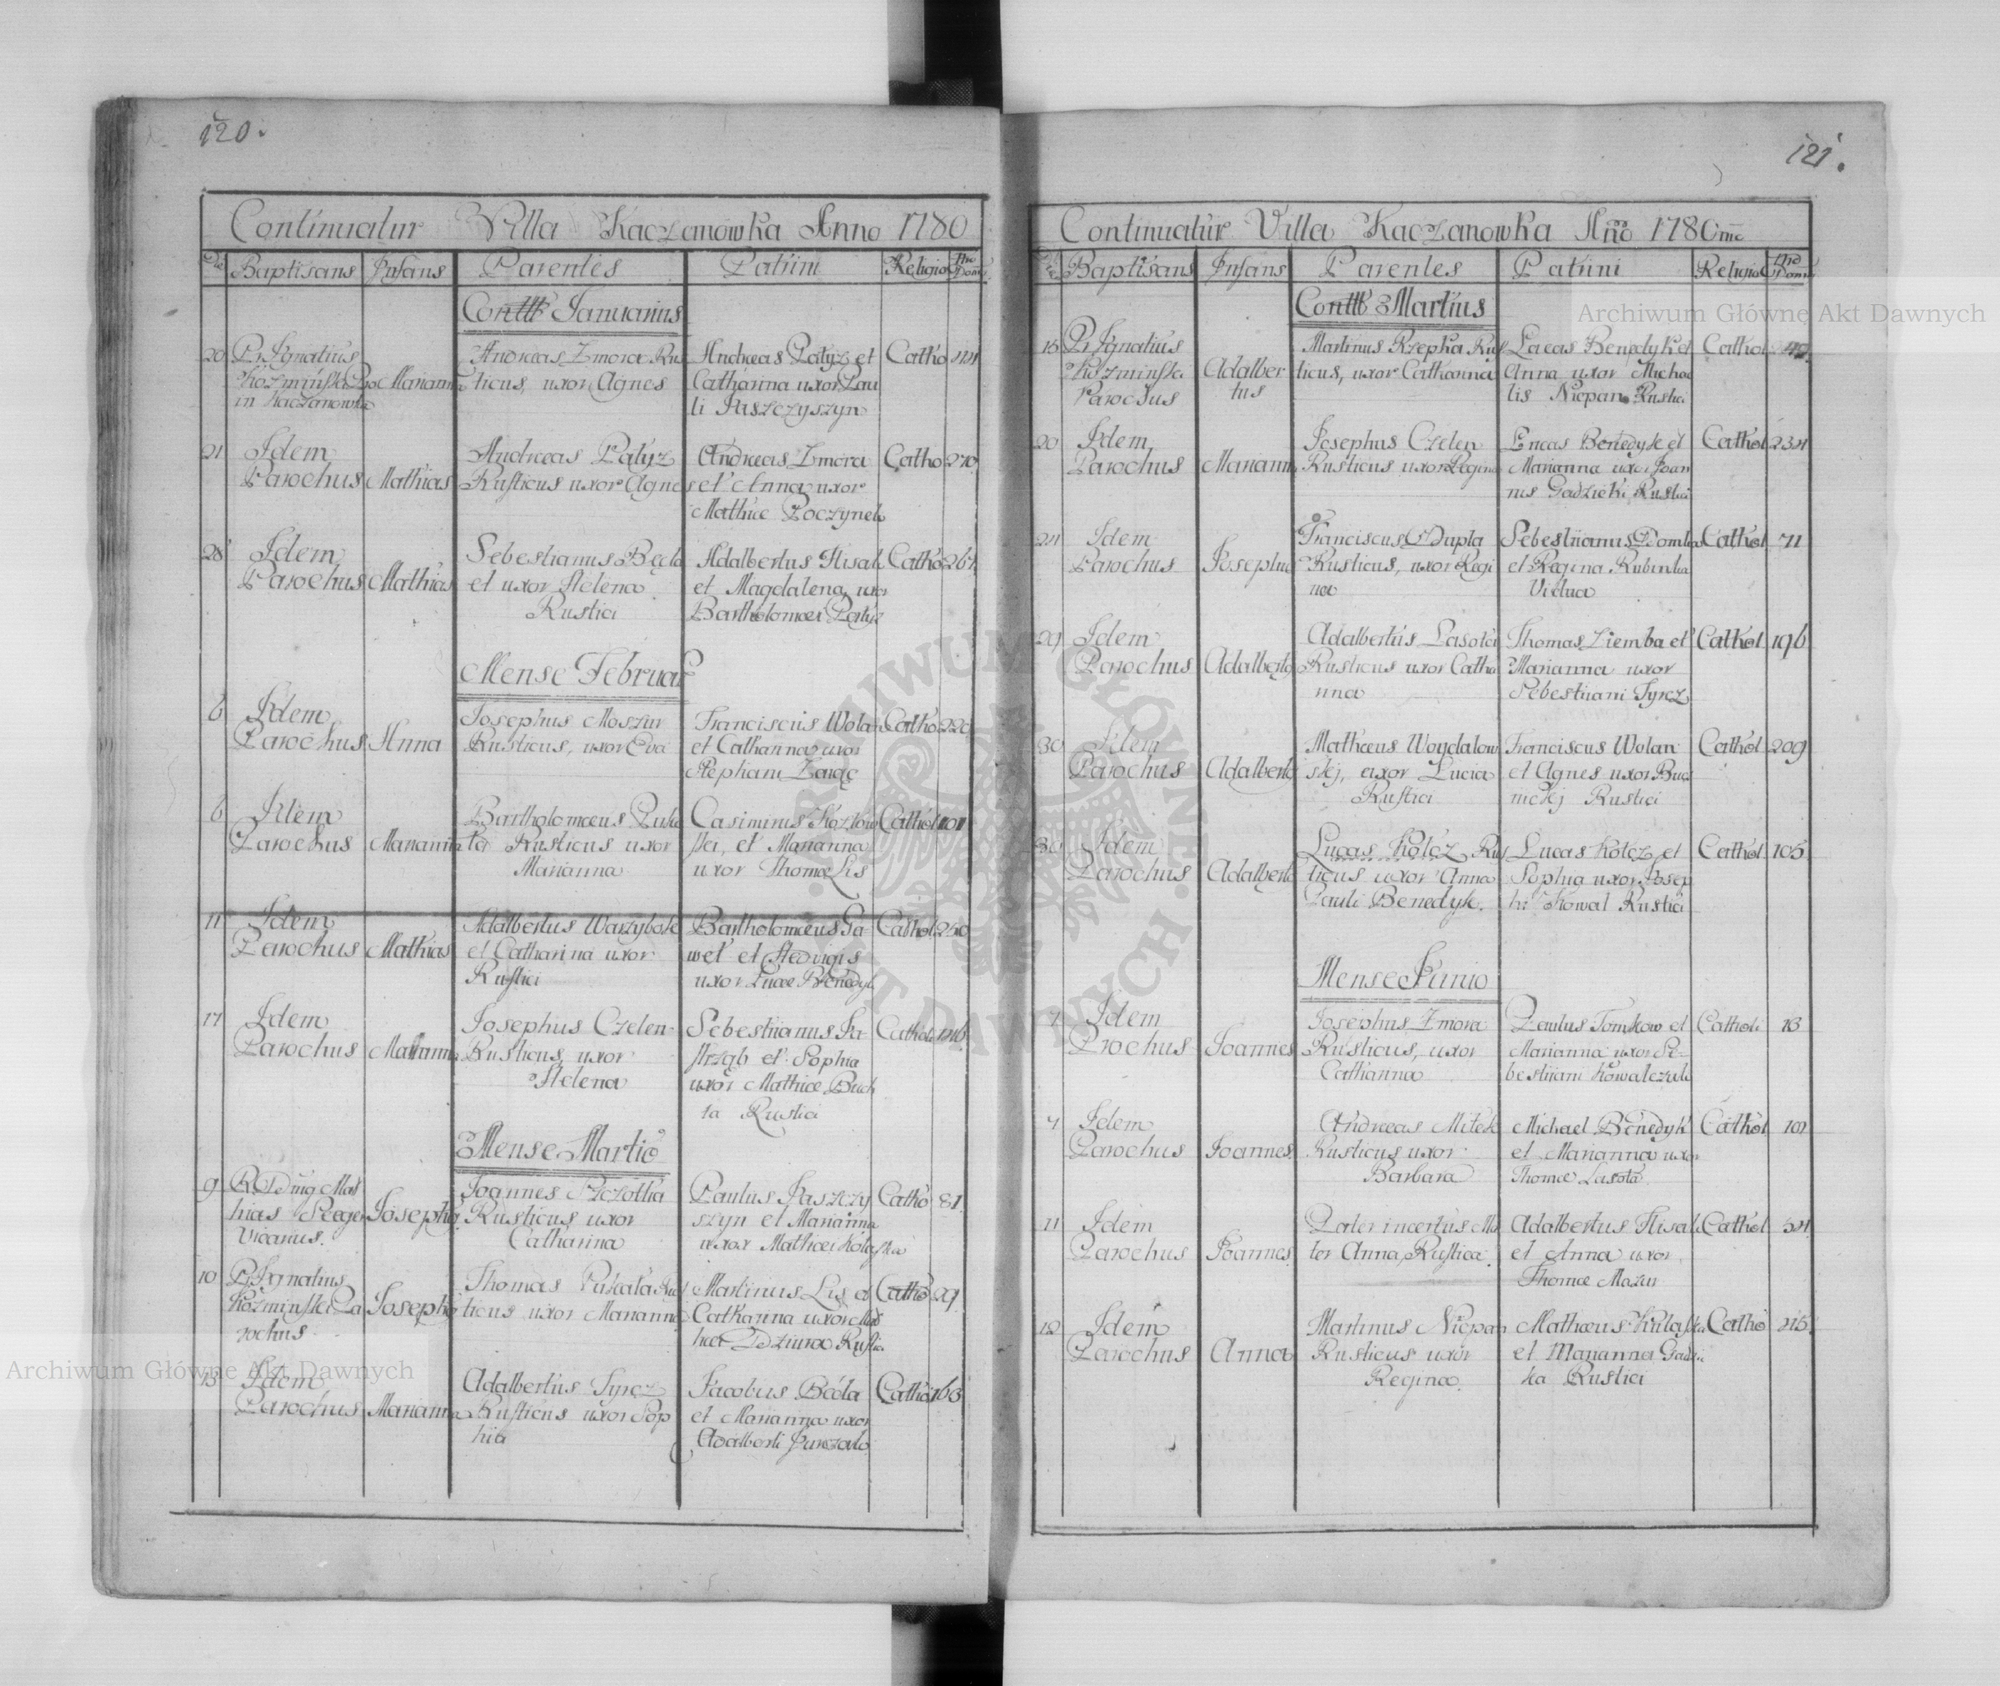 120.
Continuatur Villa Kaczanowka Anno 1780
Die Baptisans Infans Parentes Patrini Religio Nro Dom
Januarius
20 P. Ignatius Marianna Andreas Zmora Rus Andreas Patyz et Catho
Kozminski
in Kaczanowka ticus, uxor Agnes Catharina uxor Pau
li Jaszczyszyn
21 Idem Andreas Patyz Andreas Zmora Catho 270
Parochus Mathias Rusticus uxor Agnes et Anna uxor
Mathiæ Poczynek
28 Idem Sebestianus Adalbertus Catho 267
Parochus Mathias et uxor Helena et Magdalena uxor
Rustici Bartholomæi Patyz
Mense Februar
6 Idem Josephus Moszur Franciscus Wolan Catho 220
Parochus Anna Rusticus, uxor Eva et Catharina uxor
Stephani Zając
6 Idem Bartholomæus Puka Casimirus Kozlow Cathol 101
Parochus Marianna Rusticus uxor ski, et Marianna
Marianna uxor Thomæ Lis
11 Idem Adalbertus Warzybok Bartholomæus Ga Cathol 250
Parochus Mathias et Catharina uxor wel et Hedvigis
Rustici uxor Lucæ Benedyk
17 Idem Josephus Czelen Sebestiianus Ja Cathol
Parochus Marianna Rusticus, uxor strząb et Sophia
Helena uxor Mathiæ Buch
ta Rustici
Mense Martio
9 Mat Joannes Szczotka Paulus Jaszczy Catho 81
hias Josephus Rusticus uxor szyn et Marianna
Vicarius. Catharina uxor
10 P. Ignatius Thomas Pukala Rus Martinus Lis et Catho 29
Kozminski Pa Josephus ticus uxor Marianna Catharina uxor Mat
rochus Rustici
13 Idem Adalbertus Tyrcz Jacobus Catho 163
Parochus Marianna Rusticus uxor Sop et Marianna uxor
hia Adalberti
121.
Continuatur Villa Kaczanowka Anno 1780mo
Die Baptisans Infans Parentes Patrini Religio Nro Domu
Martius
15 P. Ignatius Martinus Rzepka Rus Lucas Benedyk et Cathol
Kozminski Adalber ticus, uxor Catharina Anna uxor Micha
Parochus tus lis Niepan Rustici
20 Idem Josephus Czelen Lucas Benedyk et Cathol 234
Parochus Marianna Rusticus uxor Regina Marianna uxor Joan
nis Rustici
24 Idem Franciscus Dupla Sebestiianus Domka Cathol 71
Parochus Josephus Rusticus, uxor Regi et Regina
na Vidua
29 Idem Adalbertus Lasota Thomas Ziemba et Cathol 196
Parochus Adalbertus Rusticus uxor Catha Marianna uxor
rina Sebestiiani Tyrcz
30 Idem Mathæus Woydalow Franciscus Wolan Cathol 209
Parochus Adalbertus skj, uxor Lucia et Agnes uxor
Rustici Rustici
30 Idem Lucas Kołcz Rus Lucas Kołcz et Cathol 105
Parochus Adalbertus ticus uxor Anna Sophia uxor Josep
Pauli Benedyk. hi Kowal Rustici
Mense Junio
Idem Josephus Zmora Paulus Tomkow et Catholi 13
Prochus Joannes Rusticus, uxor Marianna uxor Se-
Catharina bestiiani Kowalczuk
7 Idem Andreas Mitek Michael Benedyk Cathol 101
Parochus Joannes Rusticus uxor et Marianna uxor
Barbara Thomæ Lasota
11 Idem Pater incertus Ma Adalbertus Cathol 54
Parochus Joannes ter Anna Rustica et Anna uxor
Thomæ Mazur
12 Idem Martinus Niepan Mathæus Catho 215
Parochus Anna Rusticus uxor et Marianna
Regina ka Rustici
Archiwum Główne Akt Dawnych
Archiwum Główne Akt Dawnych
ARCHIWUM GŁÓWNE AKT DAWNYCH